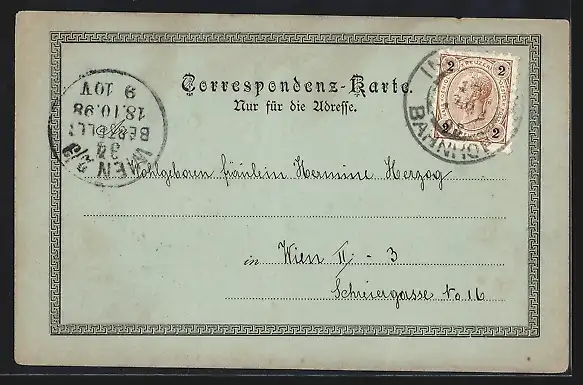 Correspondenz-Karte.
Nur für die Adresse.
2 2
2 2
BAHNHOF
WIEN
3/4
BESTELLT
18.10.98
9 10V
Wohlgeboren fräulein Hermine Herzog
in Wien II - 3
No 16